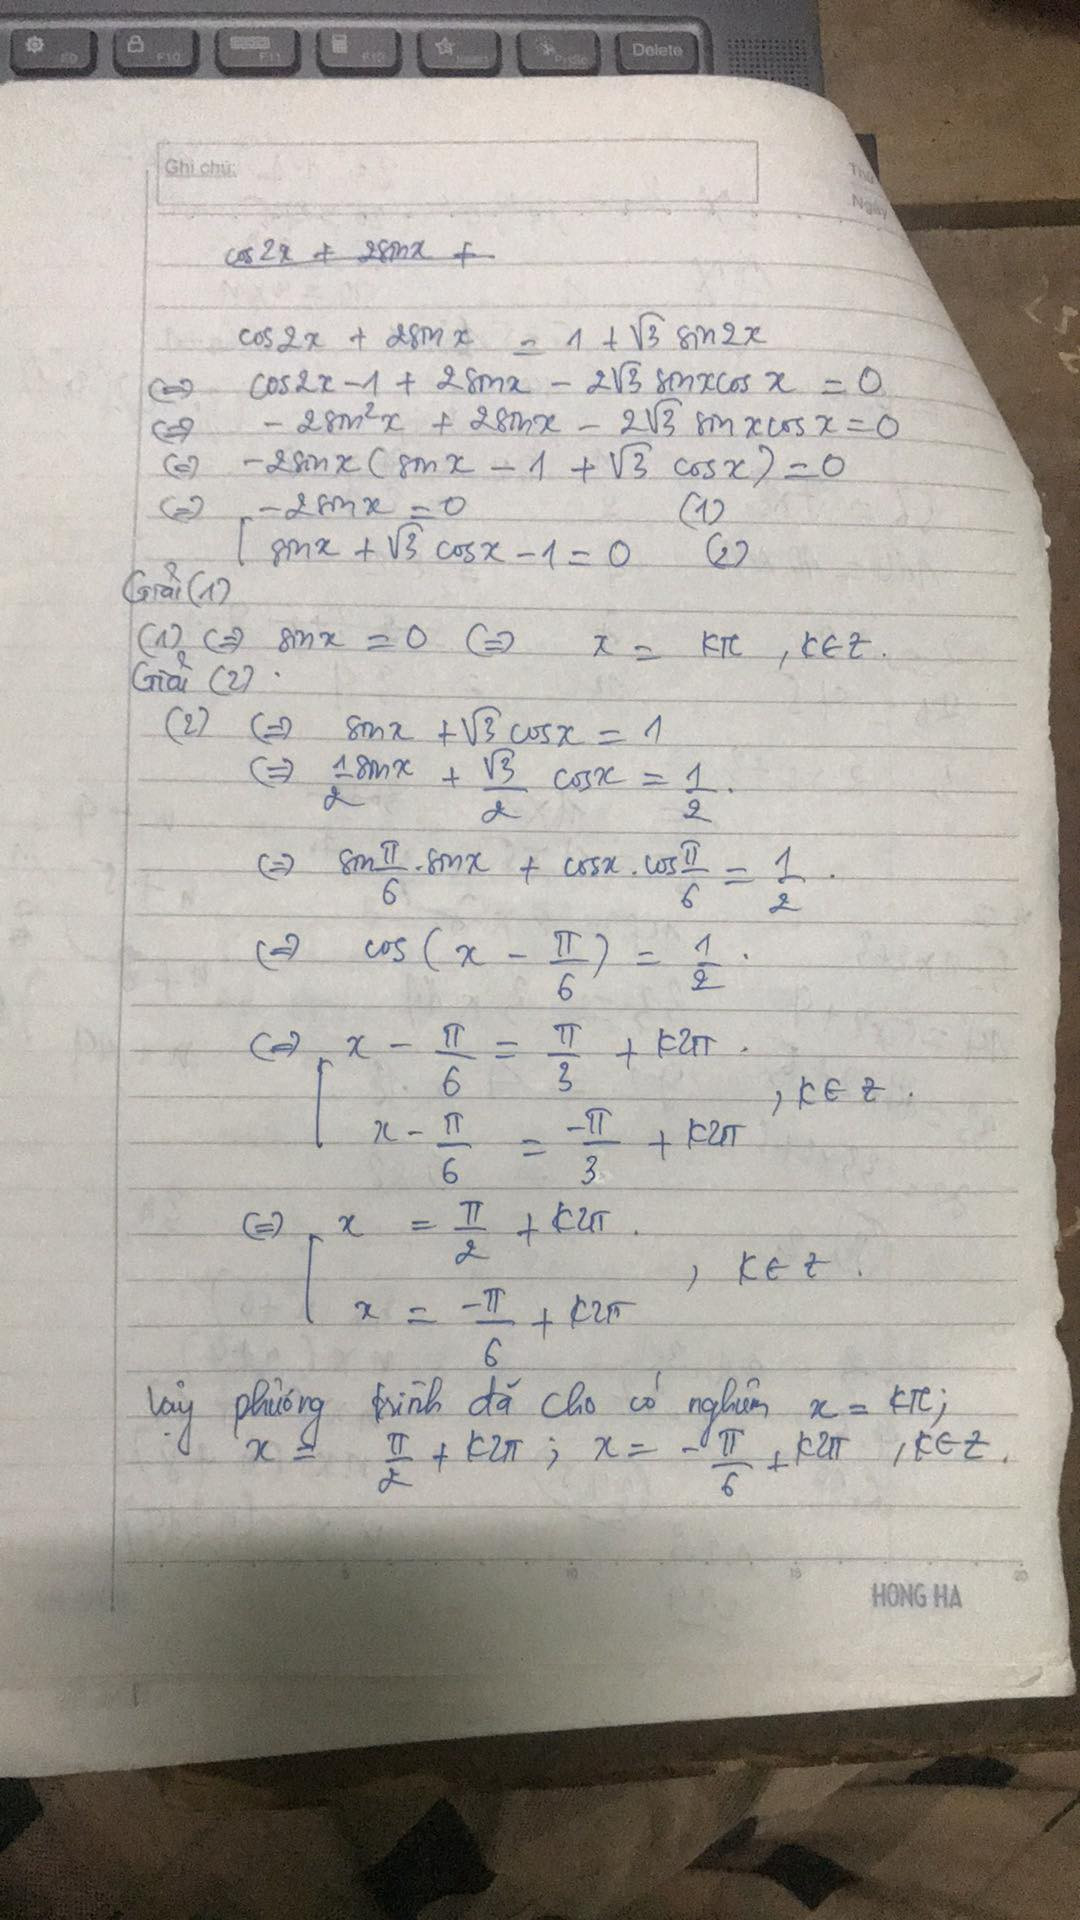 F9 F10 F11 F12 Insert PrtSc Delete
Ghi chú:
Thứ
Ngày
cos2x + 2sinx +
cos2x + 2sinx = 1 + √3 sin2x
⇔ cos2x - 1 + 2sinx - 2√3 sinxcosx = 0
⇔ - 2sin²x + 2sinx - 2√3 sinxcosx = 0
⇔ -2sinx (sinx - 1 + √3 cosx) = 0
⇔ [ -2sinx = 0 (1)
sinx + √3 cosx - 1 = 0 (2)
Giải (1)
(1) ⇔ sinx = 0 ⇔ x = kπ , k∈Z.
Giải (2).
(2) ⇔ sinx + √3 cosx = 1
⇔ 1/2 sinx + √3/2 cosx = 1/2.
⇔ sin π/6 . sinx + cosx . cos π/6 = 1/2.
⇔ cos(x - π/6) = 1/2.
⇔ [ x - π/6 = π/3 + k2π.
, k∈Z.
x - π/6 = -π/3 + k2π
⇔ [ x = π/2 + k2π.
, k∈Z.
x = -π/6 + k2π
Vậy phương trình đã cho có nghiệm x = kπ;
x = π/2 + k2π ; x = -π/6 + k2π , k∈Z.
5 10 15 20
HONG HA